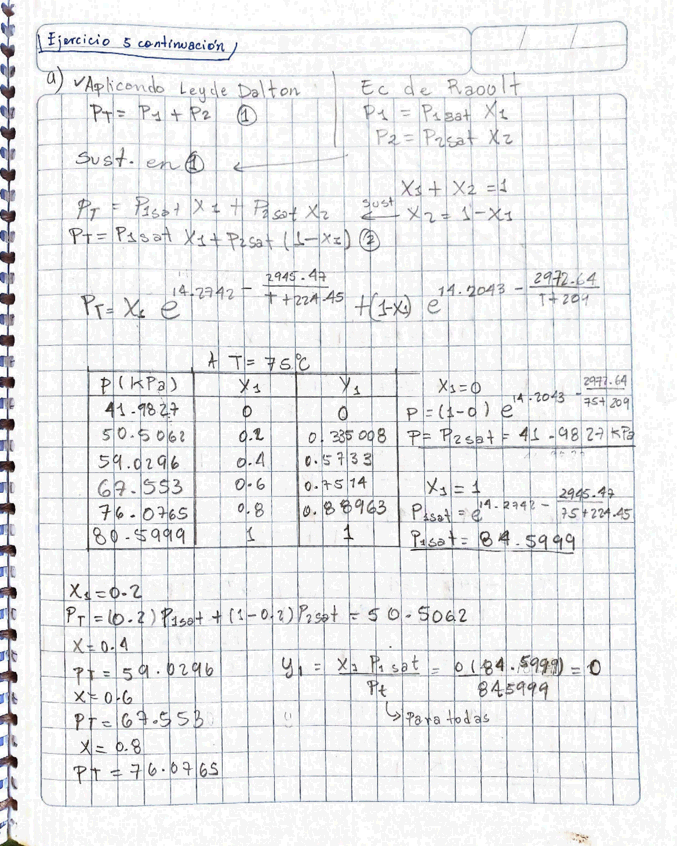 Ejercicio 5 continuación
a) ✓Aplicando Ley de Dalton
PT = P1 + P2 ①
Ec de Raoult
P1 = P1sat X1
P2 = P2sat X2
Sust. en ①
X1 + X2 = 1
PT = P1sat X1 + P2sat X2
sust
X2 = 1 - X1
PT = P1sat X1 + P2sat (1-X1) ②
PT = X1 e^14.2742 - 2945.47/T+224.45 + (1-X1) e^14.2043 - 2972.64/T+209
A T = 75°C
P(KPa) X1 Y1
41.9827 0 0
50.5062 0.2 0.335008
59.0296 0.4 0.5733
67.553 0.6 0.7514
76.0765 0.8 0.88963
80.5999 1 1
X1=0
P = (1-0) e^14.2043 - 2972.64/75+209
P = P2sat = 41.9827 KPa
X1 = 1
P1sat = e^14.2742 - 2945.47/75+224.45
P1sat = 84.5999
X1 = 0.2
PT = (0.2) P1sat + (1-0.2) P2sat = 50.5062
X = 0.4
PT = 59.0296
X = 0.6
PT = 67.553
X = 0.8
PT = 76.0765
y1 = X1 P1sat / Pt = 0(84.5999) / 845999 = 0
↳ Para todas